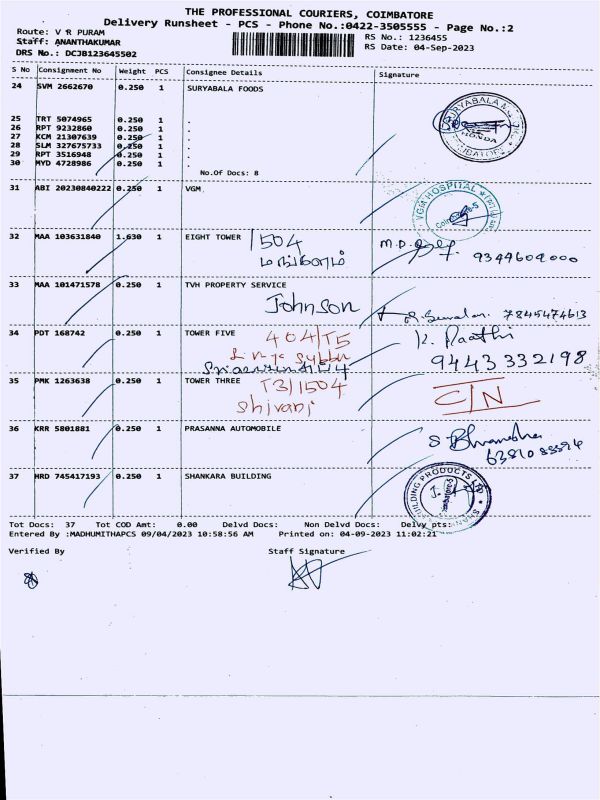 THE PROFESSIONAL COURIERS, COIMBATORE
Delivery Runsheet - PCS - Phone No.:0422-3505555 - Page No.:2
Route: V R PURAM
RS No.: 1236455
Staff: ANANTHAKUMAR
RS Date: 04-Sep-2023
DRS No.: DCJB123645502
S No Consignment No Weight PCS Consignee Details Signature
24 SVM 2662670 0.250 1 SURYABALA FOODS
25 TRT 5074965 0.250 1 .
26 RPT 9232860 0.250 1 .
27 KCM 21307639 0.250 1 .
28 SLM 327675733 0.250 1 .
29 RPT 3516948 0.250 1 .
30 MYD 4728986 0.250 1 .
No.Of Docs: 8
31 ABI 20230840222 0.250 1 VGM.
VGM HOSPITAL
32 MAA 103631840 1.630 1 EIGHT TOWER 1504
9344604000
33 MAA 101471578 0.250 1 TVH PROPERTY SERVICE
Johnson
7845474613
34 PDT 168742 0.250 1 TOWER FIVE 404/T5
K. Paathi
9443 332198
35 PMK 1263638 0.250 1 TOWER THREE T3/1504
Shivani
C/N
36 KRR 5801881 0.250 1 PRASANNA AUTOMOBILE
37 HRD 745417193 0.250 1 SHANKARA BUILDING
BUILDING PRODUCTS
Tot Docs: 37 Tot COD Amt: 0.00 Delvd Docs: Non Delvd Docs: Delvy pts:
Entered By :MADHUMITHAPCS 09/04/2023 10:58:56 AM Printed on: 04-09-2023 11:02:21
Verified By Staff Signature